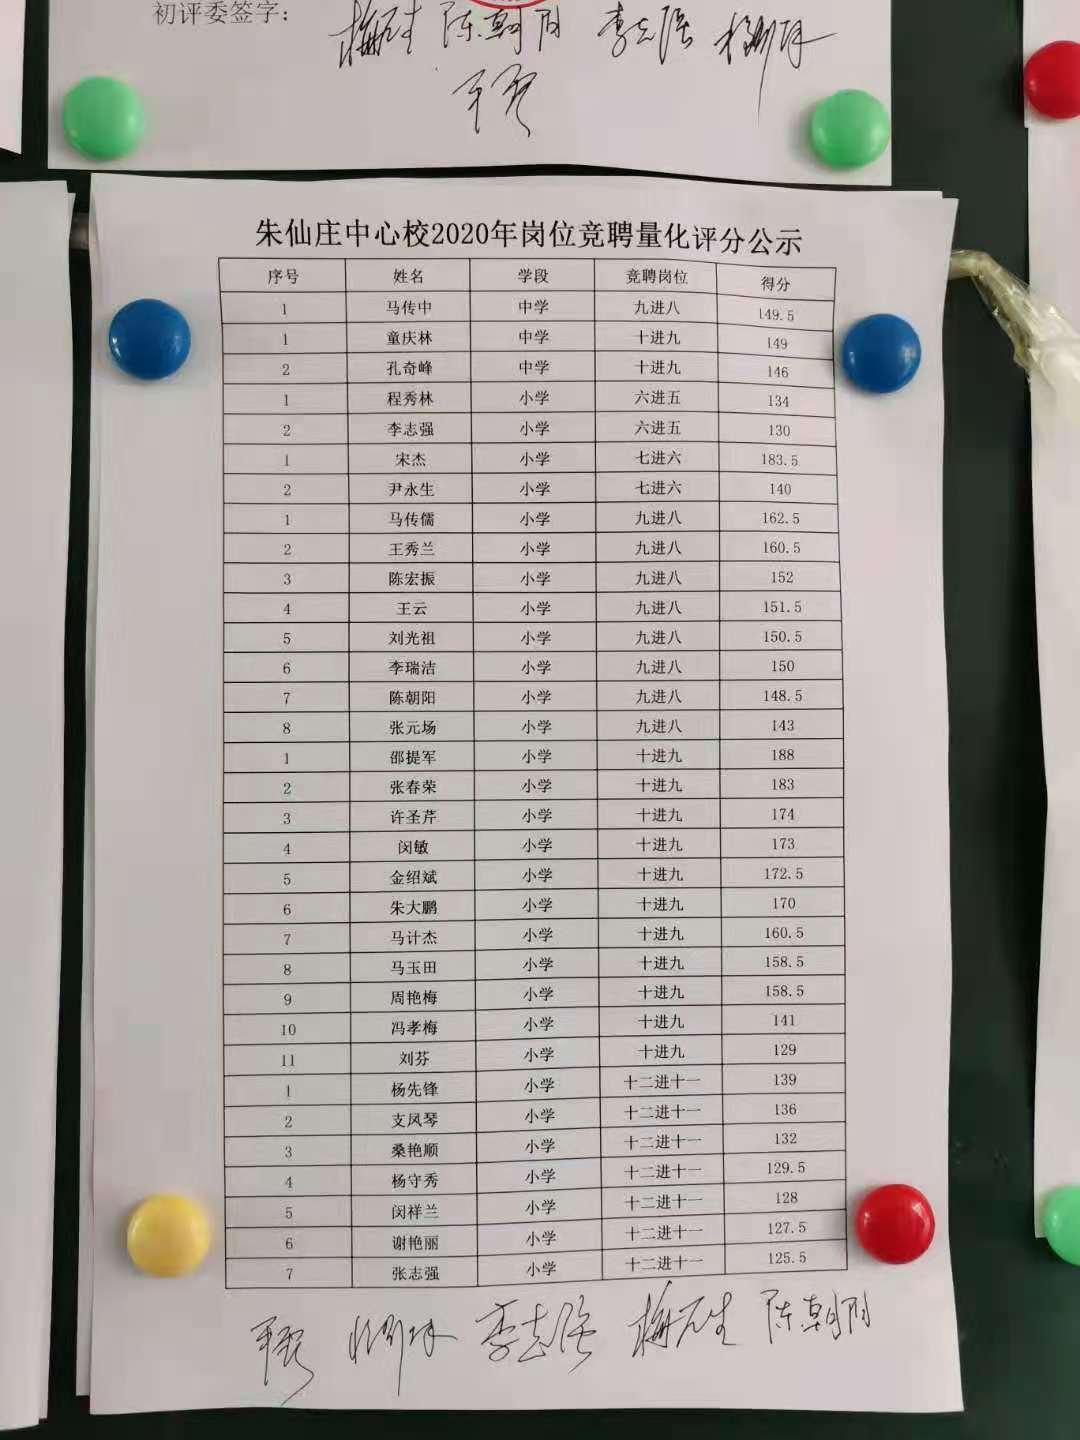 初评委签字：
陈朝阳 李志强
朱仙庄中心校2020年岗位竞聘量化评分公示
序号 姓名 学段 竞聘岗位 得分
1 马传中 中学 九进八 149.5
1 童庆林 中学 十进九 149
2 孔奇峰 中学 十进九 146
1 程秀林 小学 六进五 134
2 李志强 小学 六进五 130
1 宋杰 小学 七进六 183.5
2 尹永生 小学 七进六 140
1 马传儒 小学 九进八 162.5
2 王秀兰 小学 九进八 160.5
3 陈宏振 小学 九进八 152
4 王云 小学 九进八 151.5
5 刘光祖 小学 九进八 150.5
6 李瑞洁 小学 九进八 150
7 陈朝阳 小学 九进八 148.5
8 张元场 小学 九进八 143
1 邵提军 小学 十进九 188
2 张春荣 小学 十进九 183
3 许圣芹 小学 十进九 174
4 闵敏 小学 十进九 173
5 金绍斌 小学 十进九 172.5
6 朱大鹏 小学 十进九 170
7 马计杰 小学 十进九 160.5
8 马玉田 小学 十进九 158.5
9 周艳梅 小学 十进九 158.5
10 冯孝梅 小学 十进九 141
11 刘芬 小学 十进九 129
1 杨先锋 小学 十二进十一 139
2 支凤琴 小学 十二进十一 136
3 桑艳顺 小学 十二进十一 132
4 杨守秀 小学 十二进十一 129.5
5 闵祥兰 小学 十二进十一 128
6 谢艳丽 小学 十二进十一 127.5
7 张志强 小学 十二进十一 125.5
李志强 陈朝阳